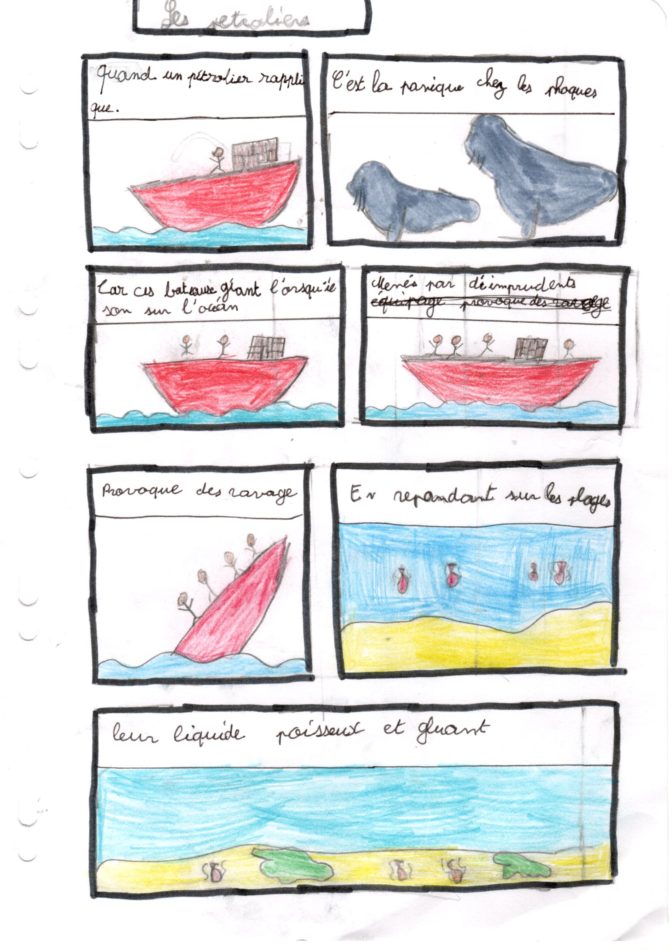 Les petroliers
Quand un pétrolier rappli
que.
C'est la panique chez les phoques
Car ces bateaux géant l'orsqu'ils
son sur l'océan
Menés par d'éimprudents
equipage provoque des ravage
Provoque des ravage
En repandant sur les plages
leur liquide poisseux et gluant